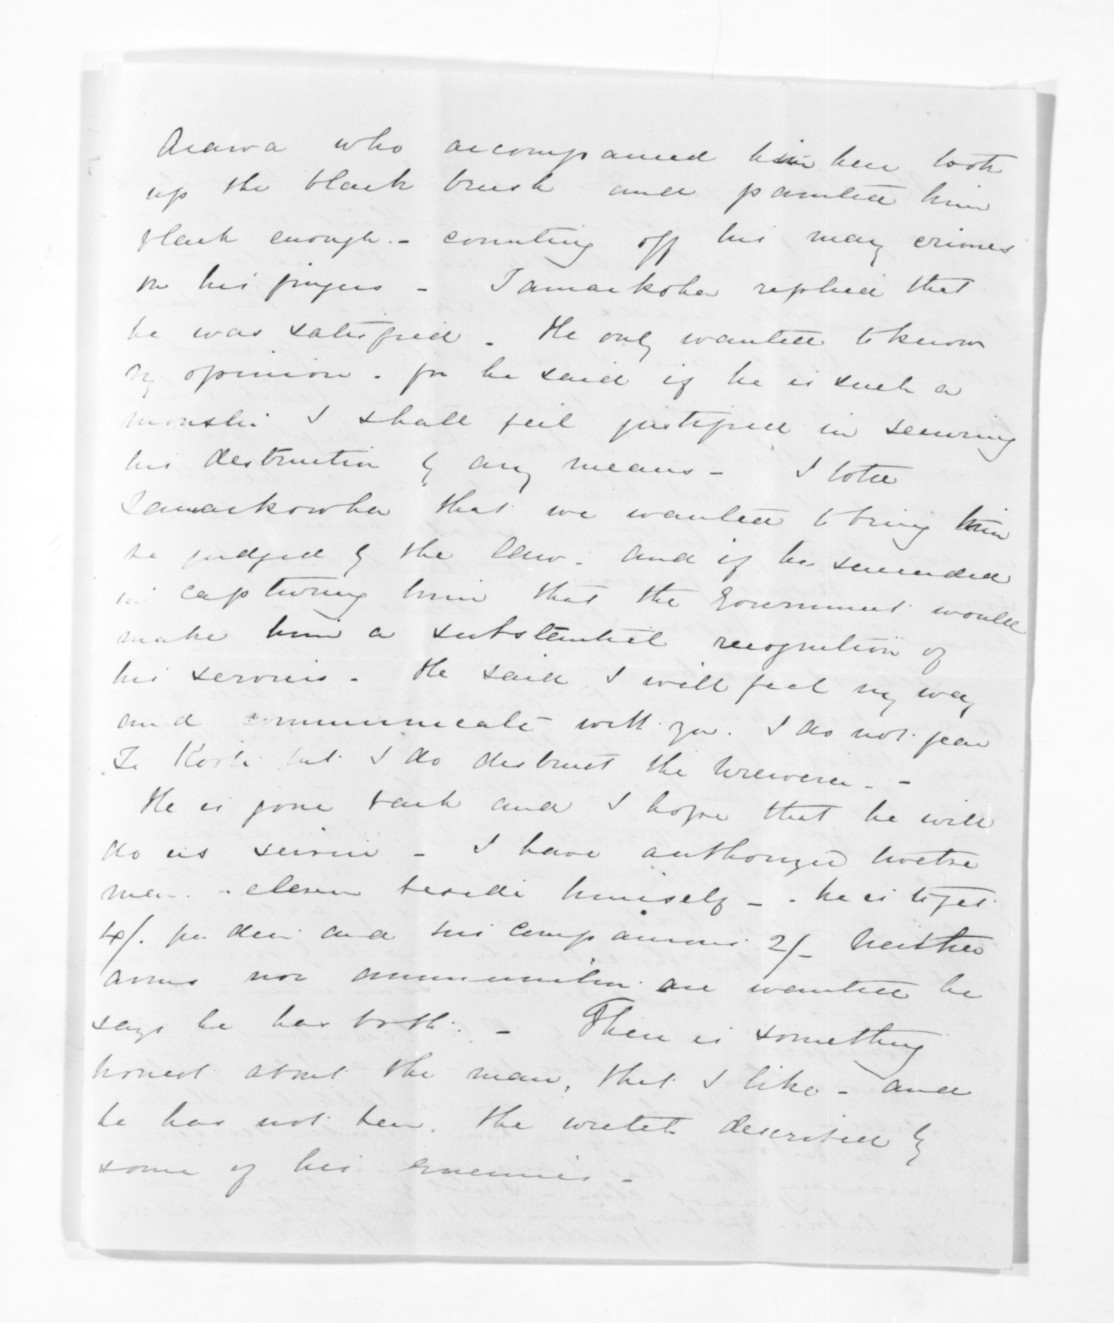 Arawa who accompanied him here took
up the black brush and painted him
black enough - counting off his many crimes
on his fingers - Tamaikoha replied that
he was satisfied - He only wanted to know
my opinion - for he said if he is such a
monster I shall feel justified in securing
his destruction by any means - I told
Tamaikowha that we wanted to bring him
to be judged by the Law - and if he succeeded
in capturing him that the Government would
make him a substantial recognition of
his services - He said I will feel my way
and communicate with you. I do not fear
Te Kooti but I do distrust the Urewera. -
He is gone back and I hope that he will
do us service - I have authorized twelve
men - eleven beside himself - he is to get
4/. per diem and his companions 2/- Neither
arms nor ammunition are wanted he
says he has both. - There is something
honest about the man, that I like - and
he has not been the wretch described by
some of his enemies -